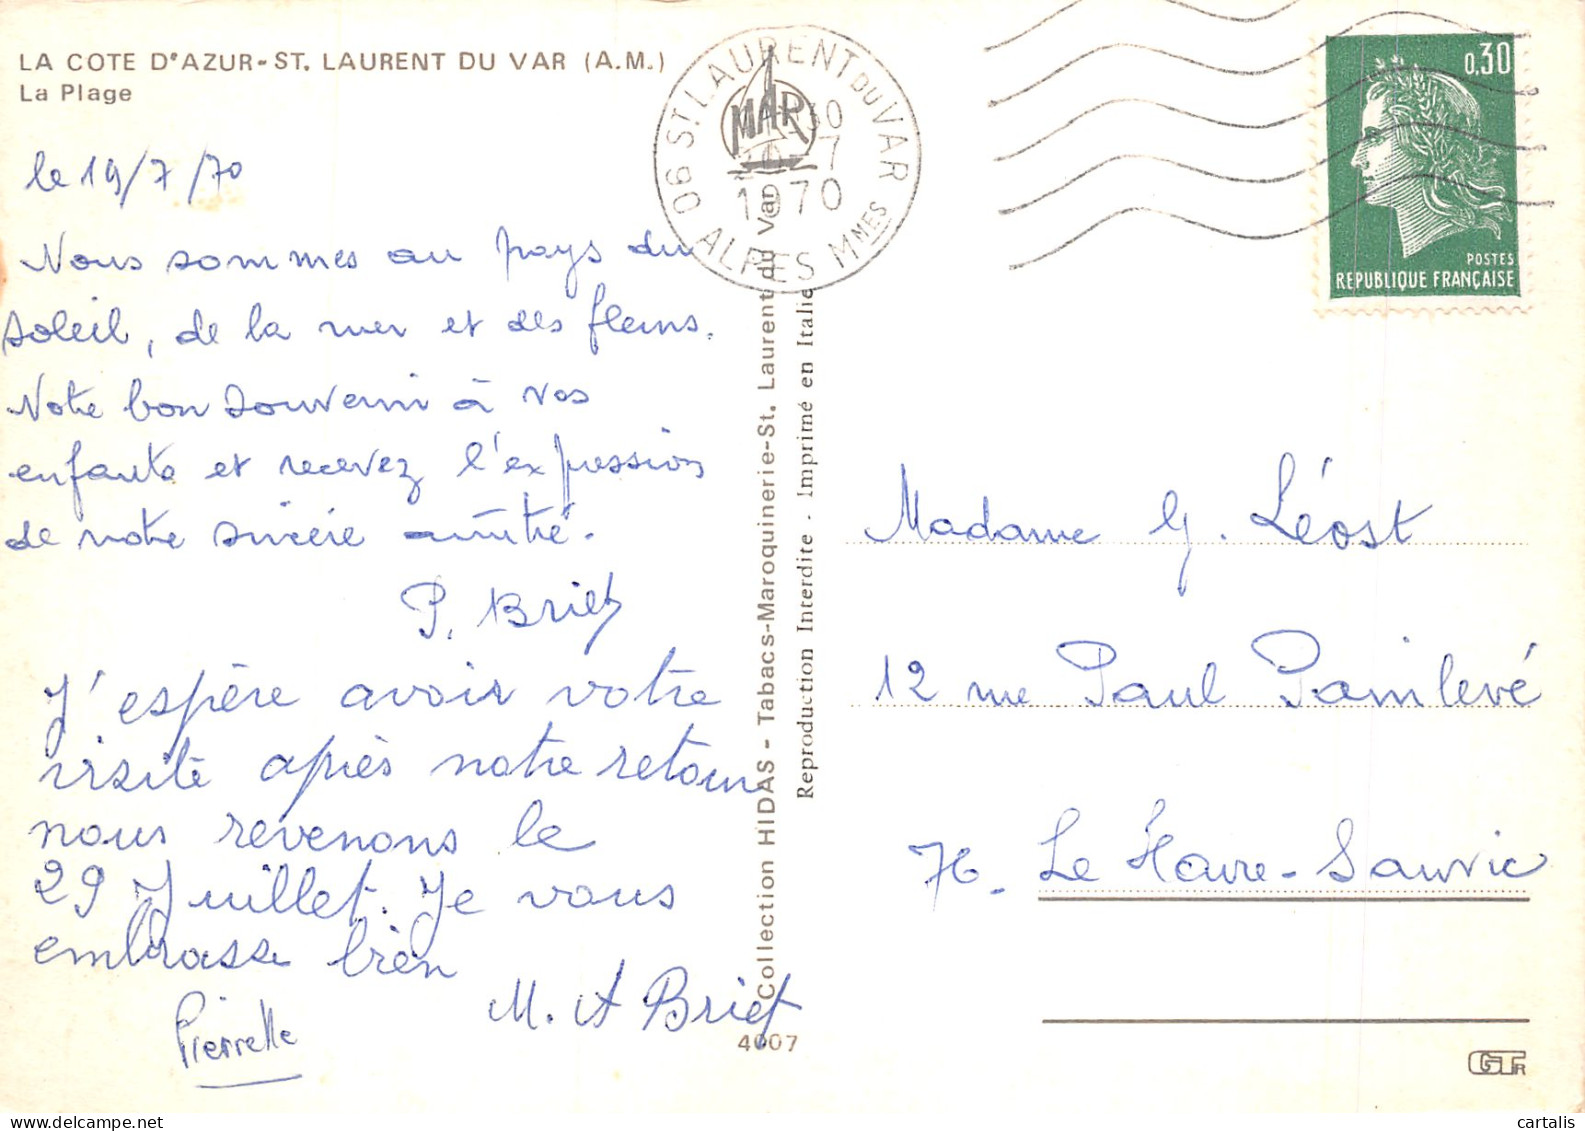 LA COTE D'AZUR-ST. LAURENT DU VAR (A.M.)
La Plage
le 19/7/70
Nous sommes au pays du
soleil, de la mer et des fleurs.
Notre bon souvenir à vos
enfants et recevez l'expression
de notre sincère amitié.
P. Briet
J'espère avoir votre
visite après notre retour
nous revenons le
29 Juillet. Je vous
embrasse bien
M. A Briet
Pierrette
06 ST LAURENT DU VAR
ALPES Mmes
30
7
1970
MAR
Collection HIDAS - Tabacs-Maroquinerie-St. Laurent du Var
Reproduction Interdite - Imprimé en Italie
4007
0,30
POSTES
REPUBLIQUE FRANÇAISE
Madame G. Léost
12 rue Paul Painlevé
76. Le Havre-Sanvic
GTR
cartalis